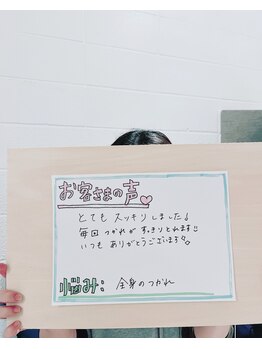 お客さまの声
とても スッキリしました!
毎回 つかれが すっきりとれます!
いつも ありがとうございます。
お悩み: 全身のつかれ